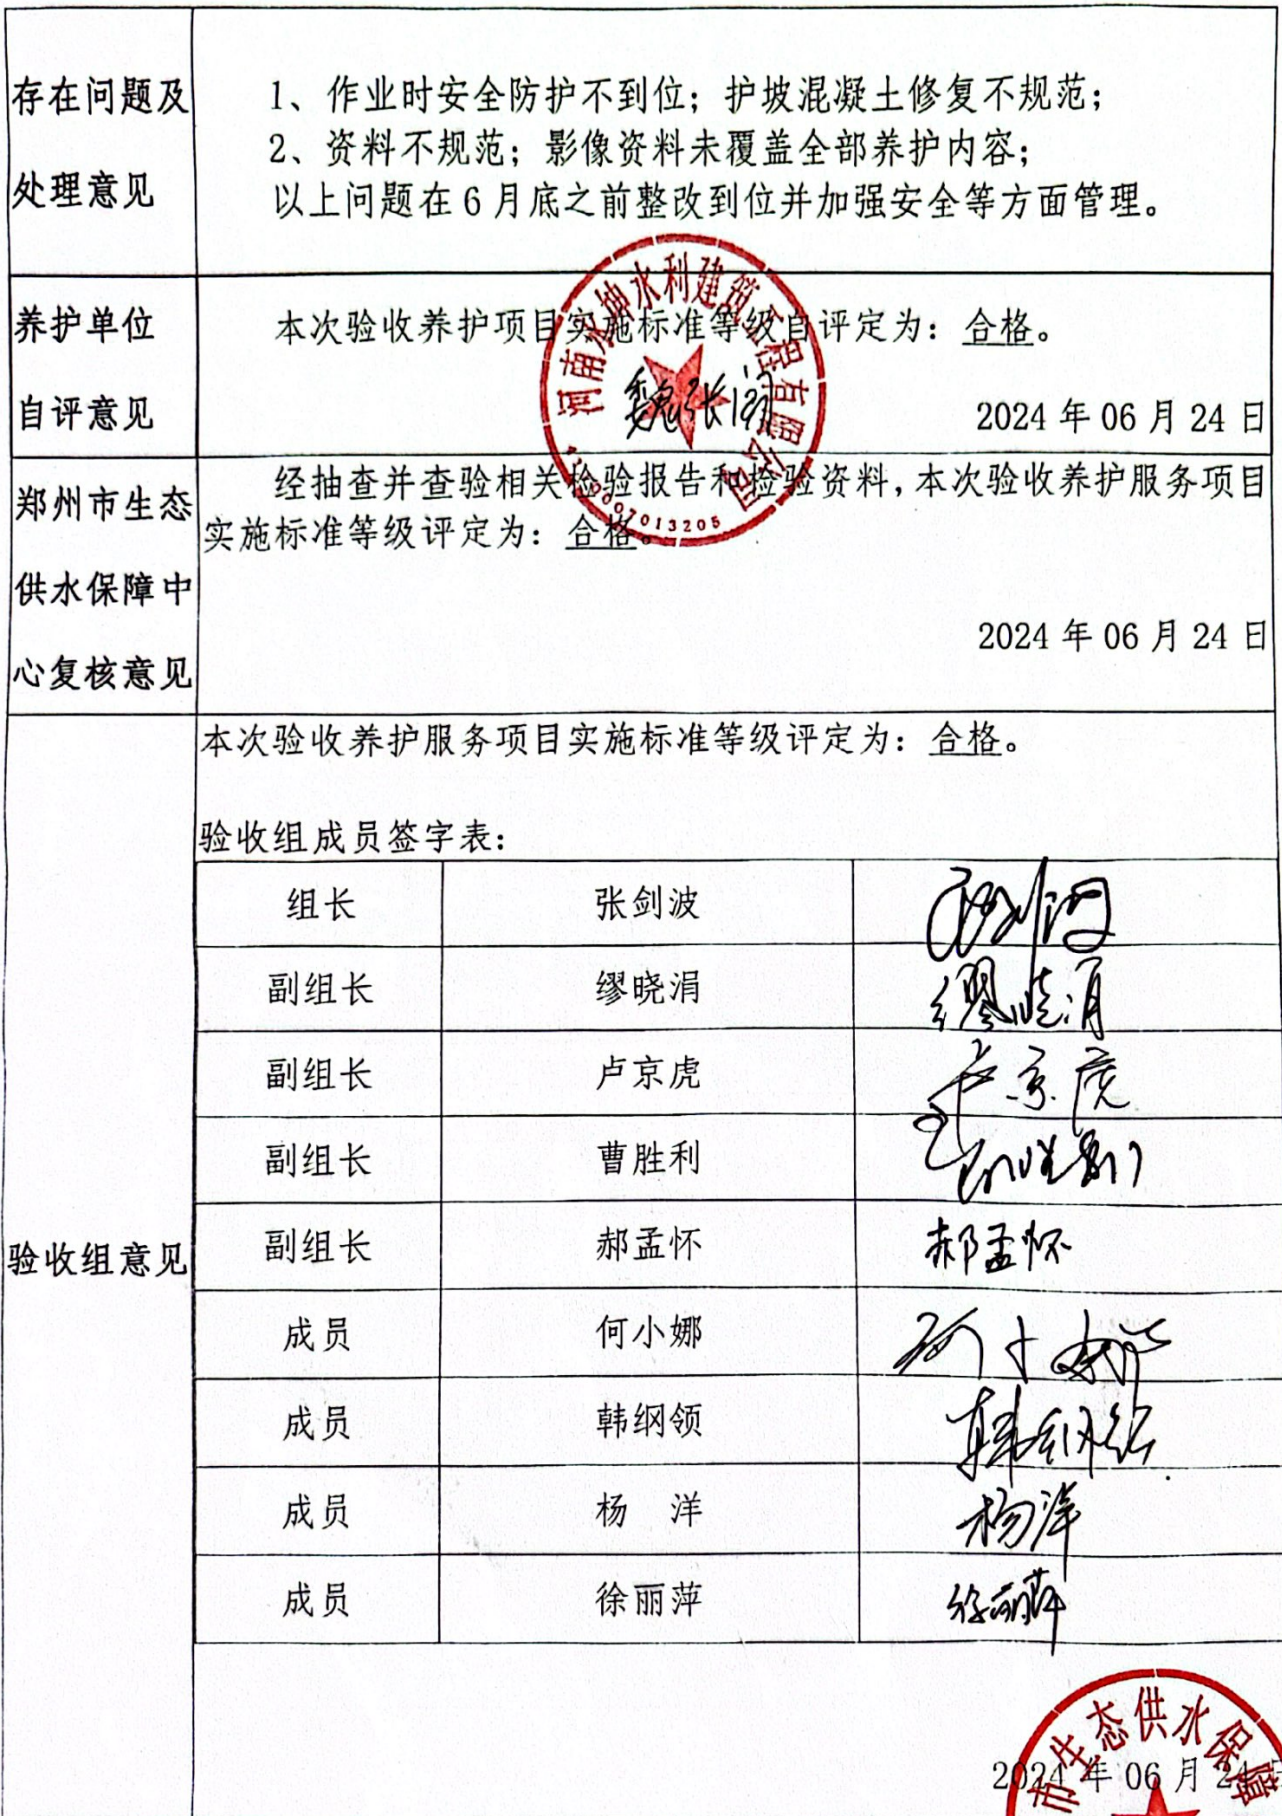 存在问题及
处理意见
1、作业时安全防护不到位；护坡混凝土修复不规范；
2、资料不规范；影像资料未覆盖全部养护内容；
以上问题在6月底之前整改到位并加强安全等方面管理。
养护单位
自评意见
本次验收养护项目实施标准等级自评定为：合格。
2024年06月24日
郑州市生态
供水保障中
心复核意见
经抽查并查验相关检验报告和检验资料，本次验收养护服务项目
实施标准等级评定为：合格。
2024年06月24日
验收组意见
本次验收养护服务项目实施标准等级评定为：合格。
验收组成员签字表：
组长 张剑波 张剑波
副组长 缪晓涓 缪晓涓
副组长 卢京虎 卢京虎
副组长 曹胜利 曹胜利
副组长 郝孟怀 郝孟怀
成员 何小娜 何小娜
成员 韩纲领 韩纲领
成员 杨 洋 杨洋
成员 徐丽萍 徐丽萍
市生态供水保障
2024年06月24日